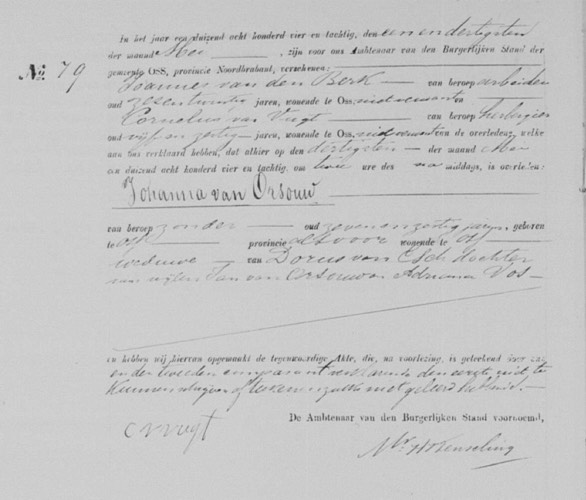 In het jaar een duizend acht honderd vier en tachtig, den eenendertigsten
der maand Mei, zijn voor ons Ambtenaar van den Burgerlijken Stand der
gemeente OSS, provincie Noordbrabant, verschenen:
No. 79
Joannes van den Berk van beroep arbeider
oud zesentwintig jaren, wonende te Oss, niet verwant en
Cornelius van Vugt van beroep herbergier
oud vijf en zestig jaren, wonende te Oss, niet verwant van de overledene, welke
aan ons verklaard hebben, dat alhier op den dertigsten der maand Mei
een duizend acht honderd vier en tachtig, om twee ure des na middags, is overleden:
Johanna van Orsouw
van beroep zonder oud zevenenzestig jaren, geboren
te Oss provincie als voor wonende te Oss
weduwe van Dorus van Esch dochter
van wijlen Jan van Orsouw en Adriana Vos
en hebben wij hiervan opgemaakt de tegenwoordige Akte, die, na voorlezing, is geteekend door ons
en den tweeden comparant verklarende den eerste niet te
kunnen schrijven of teekenen zulks niet geleerd hebbende.
De Ambtenaar van den Burgerlijken Stand voornoemd,
C v Vugt